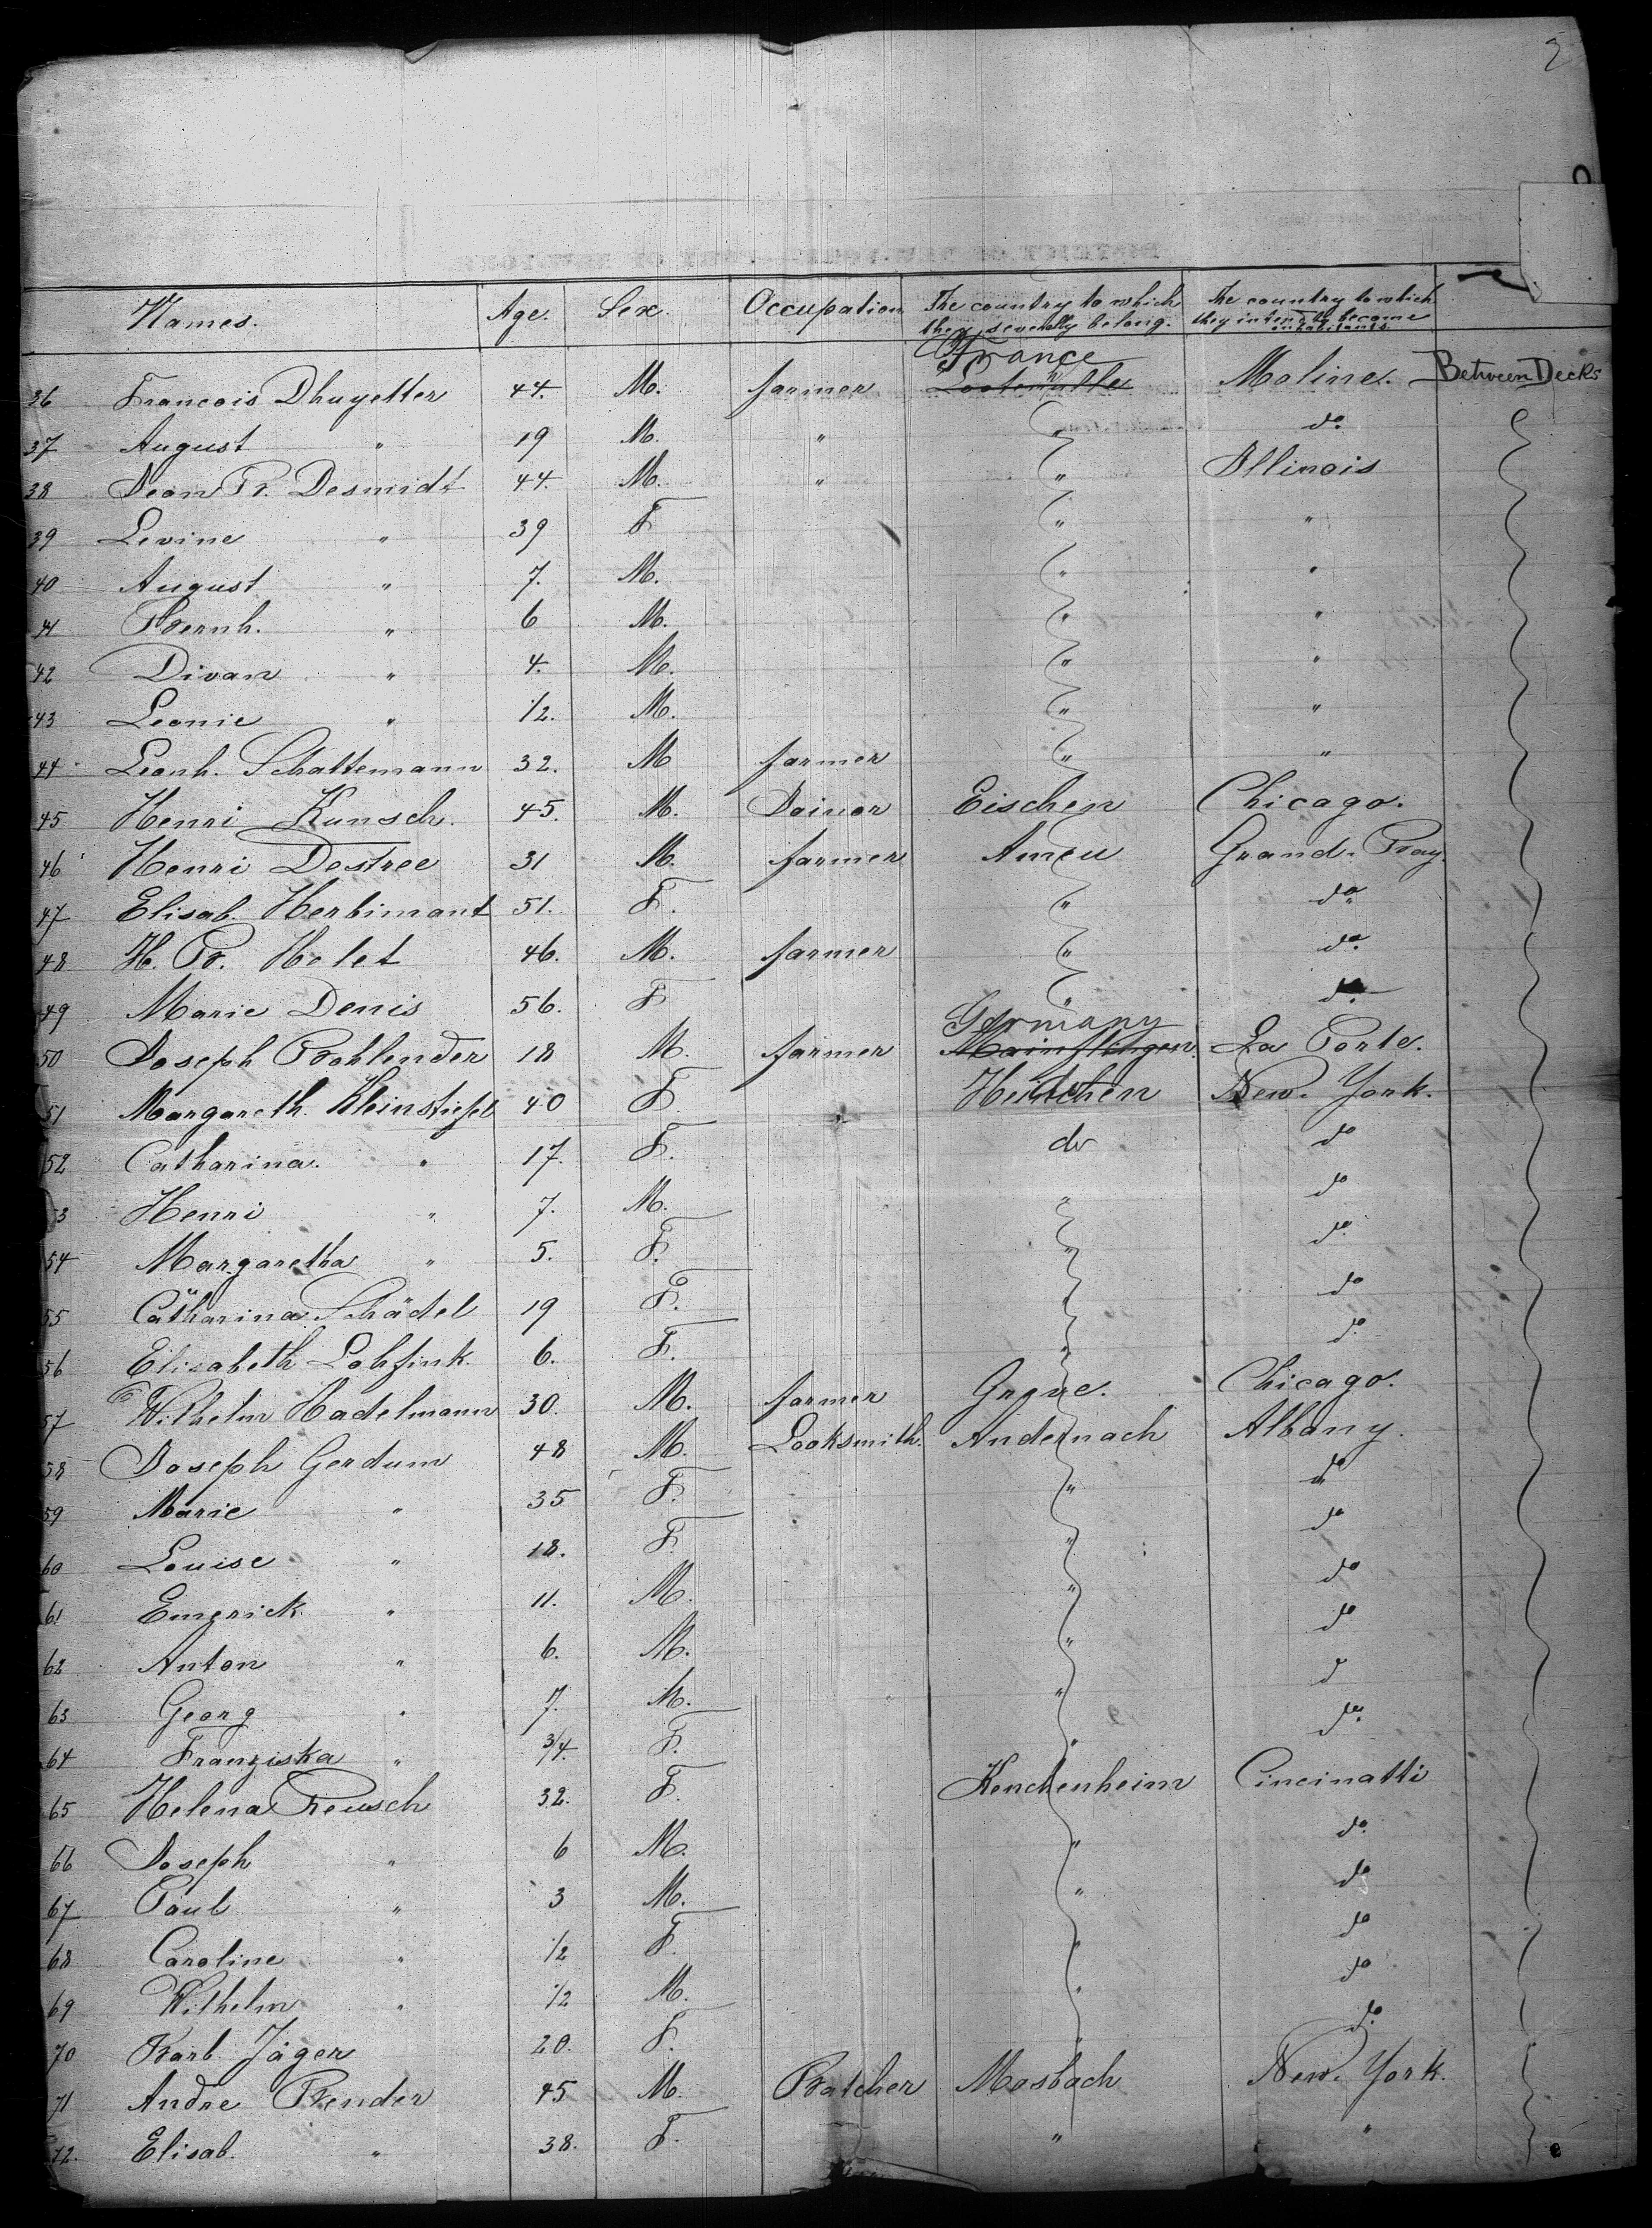 Names. Age. Sex. Occupation The country to which they severally belong. The country to which they intend to become inhabitants
France
36 Francois Dhuyetter 44. M. farmer Moline. Between Decks
37 August " 19 M. " " do.
38 Jean B. Desmidt 44. M. " " Illinois
39 Levine " 39 F " "
40 August " 7. M. " "
41 Bernh. " 6 M. " "
42 Divan " 4. M. " "
43 Leonie " 1/2. M. " "
44 Leonh. Schattemann 32. M farmer " "
45 Henri Kunsch. 45. M. Joinor Eischen Chicago.
46 Henri Destree 31 M. farmer Ameu Grand. Bay.
47 Elisab. Herbimant 51. F. " do.
48 H. B. Holet 46. M. farmer " do.
49 Marie Denis 56. F " do.
Germany
50 Joseph Bohlender 18 M. farmer Mainflingen. La Porte.
51 Margareth. Kleinstiefel 40 F. New. York.
52 Catharina. " 17. F. do do
53 Henri " 7. M. " do
54 Margaretha " 5. F. " do.
55 Catharina Schädel 19 F. " do
56 Elisabeth Lohfink. 6. F. " do.
57 Wilhelm Hadelmann 30. M. farmer Grone. Chicago.
58 Joseph Gerdum 48 M. Looksmith. Andernach Albany.
59 Marie " 35 F. " do
60 Louise " 18. F. " do
61 Emerick. " 11. M. " do
62 Anton " 6. M. " do
63 Georg " 7. M. " d
64 Franziska " 3/4. F. " do.
65 Helena Reusch 32. F. Kenchenheim Cincinatti
66 Joseph " 6 M. " do.
67 Paul " 3 M. " do
68 Caroline " 1/2 F. " do
69 Wilhelm " 1/2 M. " do
70 Barb. Jäger 20. F. " do.
71 Andre Bender 45 M. Batcher Mosbach New. York.
72. Elisab. " 38. F. " "